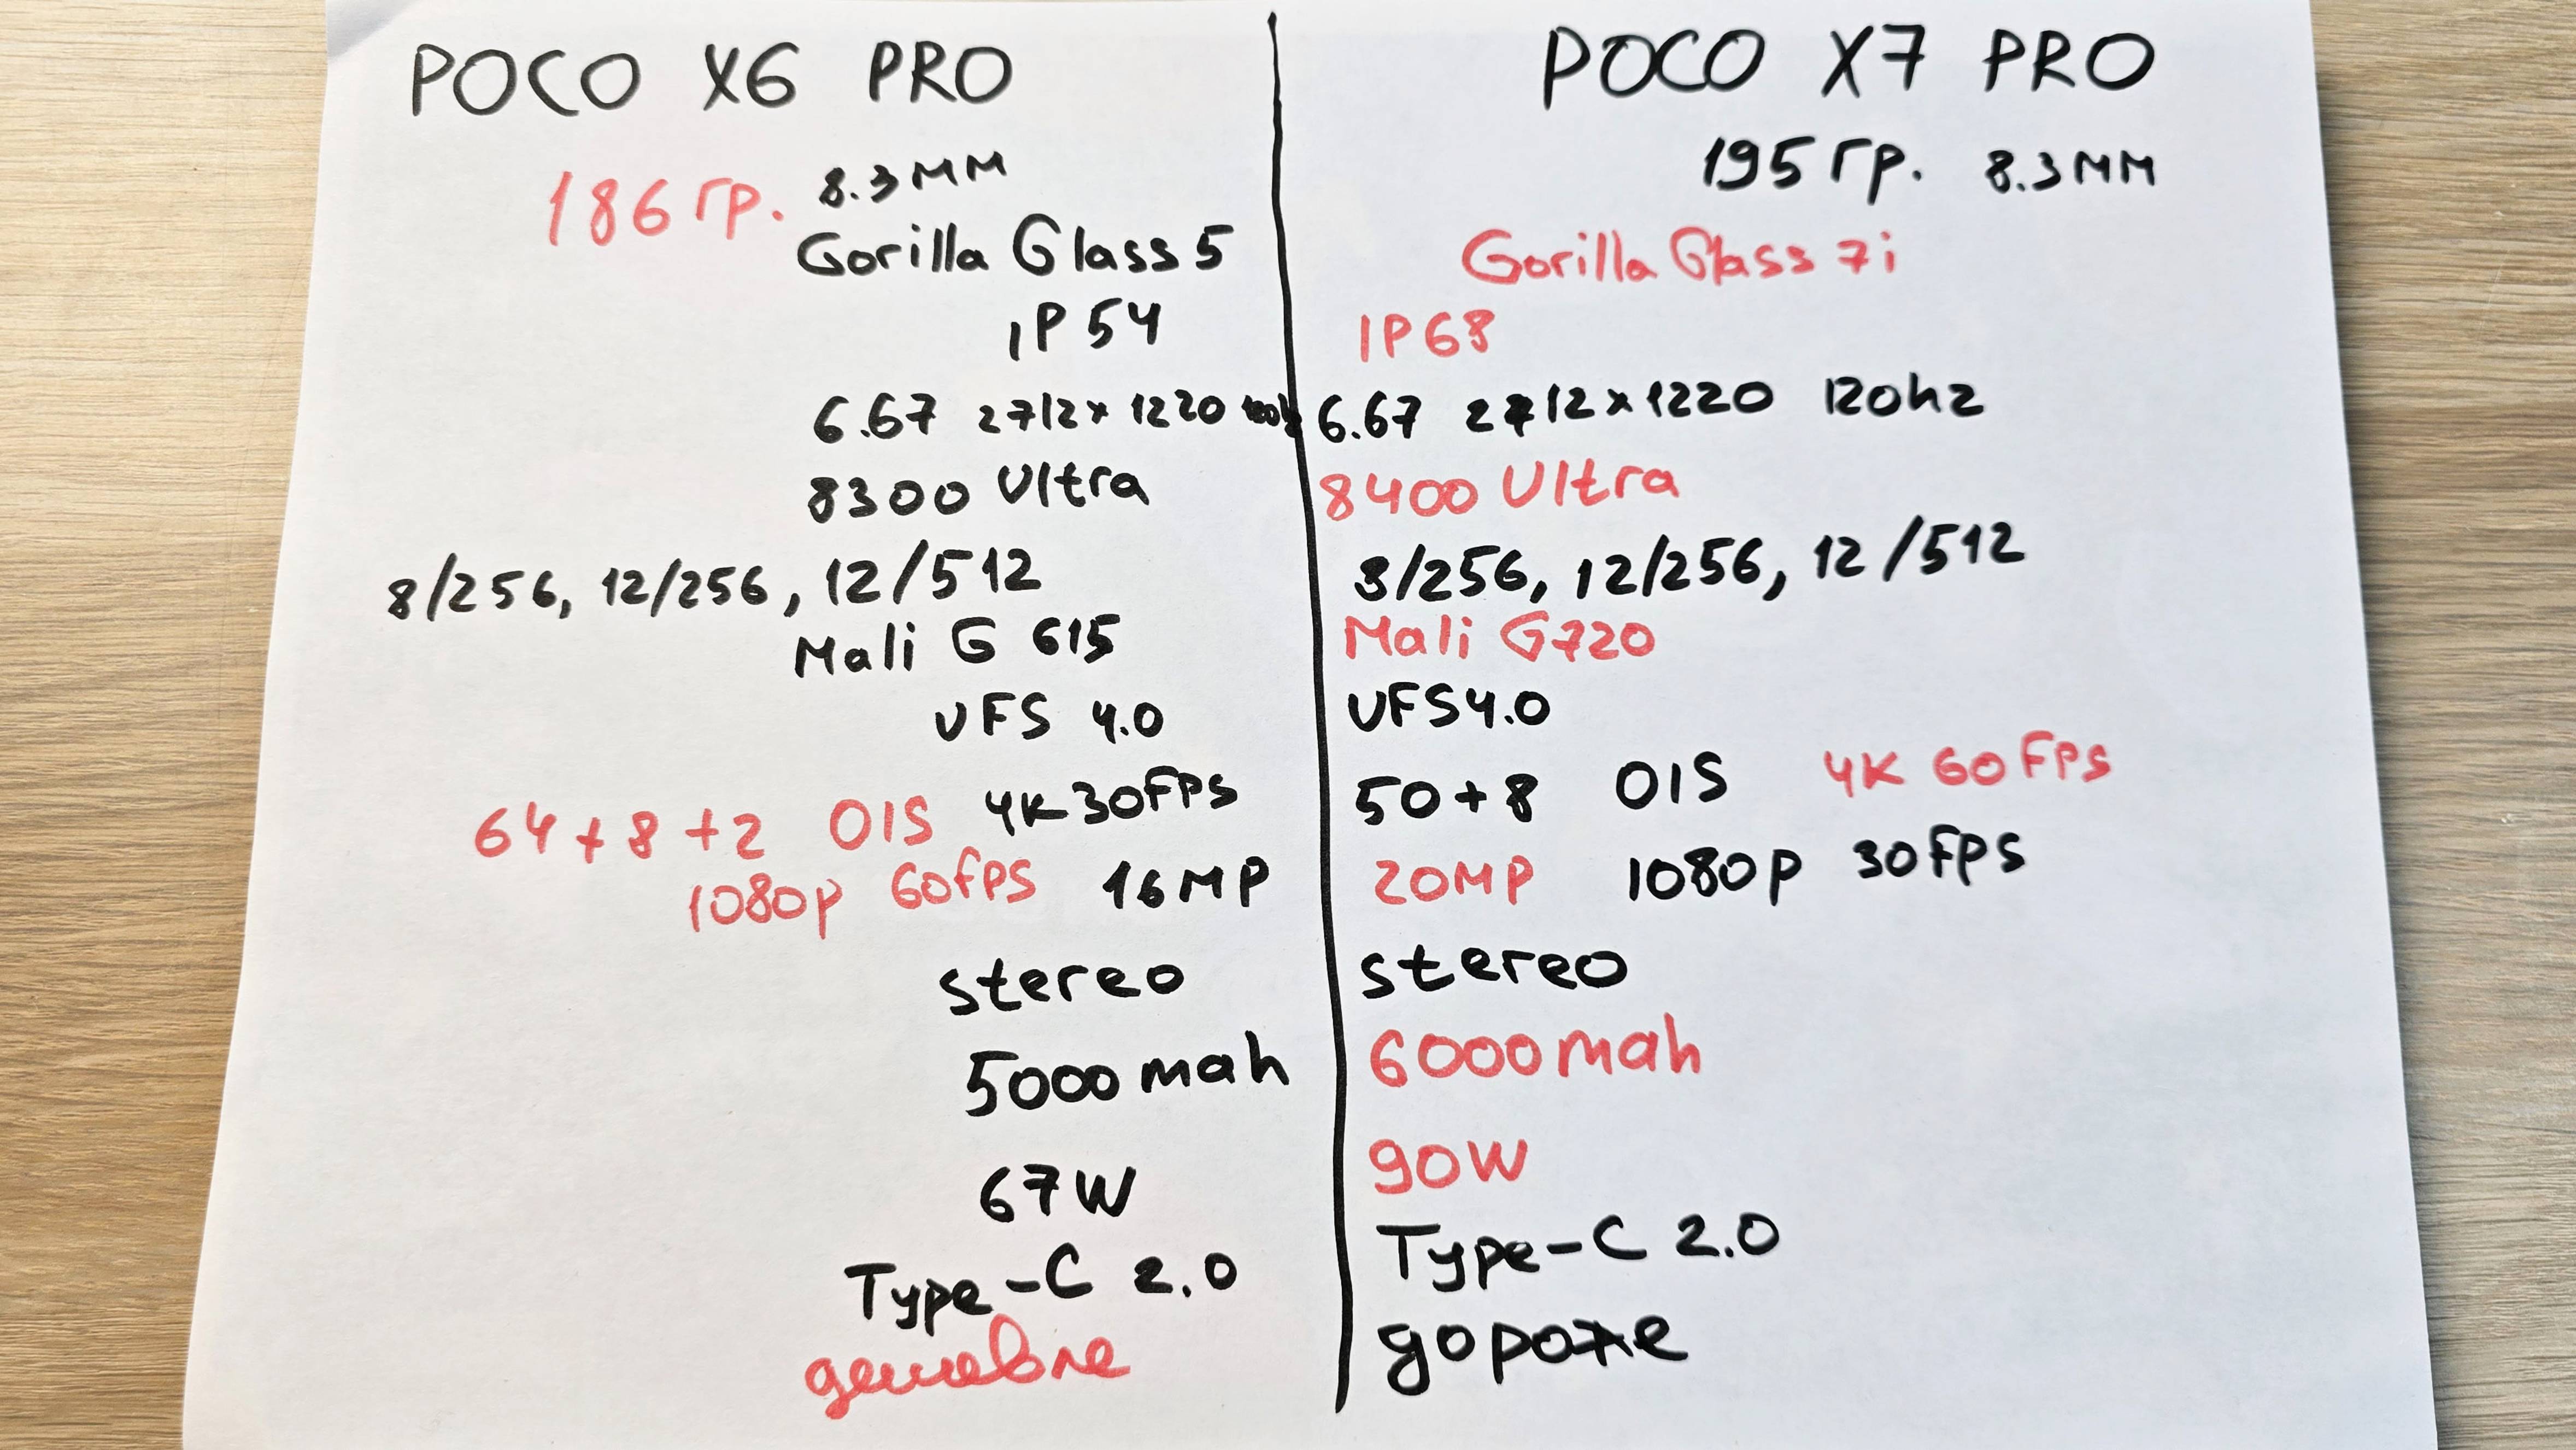 POCO X6 PRO
186 гр. 8.3 мм
Gorilla Glass 5
IP 54
6.67 2712 x 1220
8300 Ultra
8/256, 12/256, 12/512
Mali G 615
UFS 4.0
64 + 8 + 2 OIS 4K 30FPS
1080p 60fps 16MP
stereo
5000 mah
67W
Type-C 2.0
дешевле
POCO X7 PRO
195 гр. 8.3 мм
Gorilla Glass 7i
IP68
6.67 2712 x 1220 120hz
8400 Ultra
8/256, 12/256, 12/512
Mali G720
UFS4.0
50 + 8 OIS 4K 60FPS
20MP 1080p 30FPS
stereo
6000mah
90W
Type-C 2.0
дороже